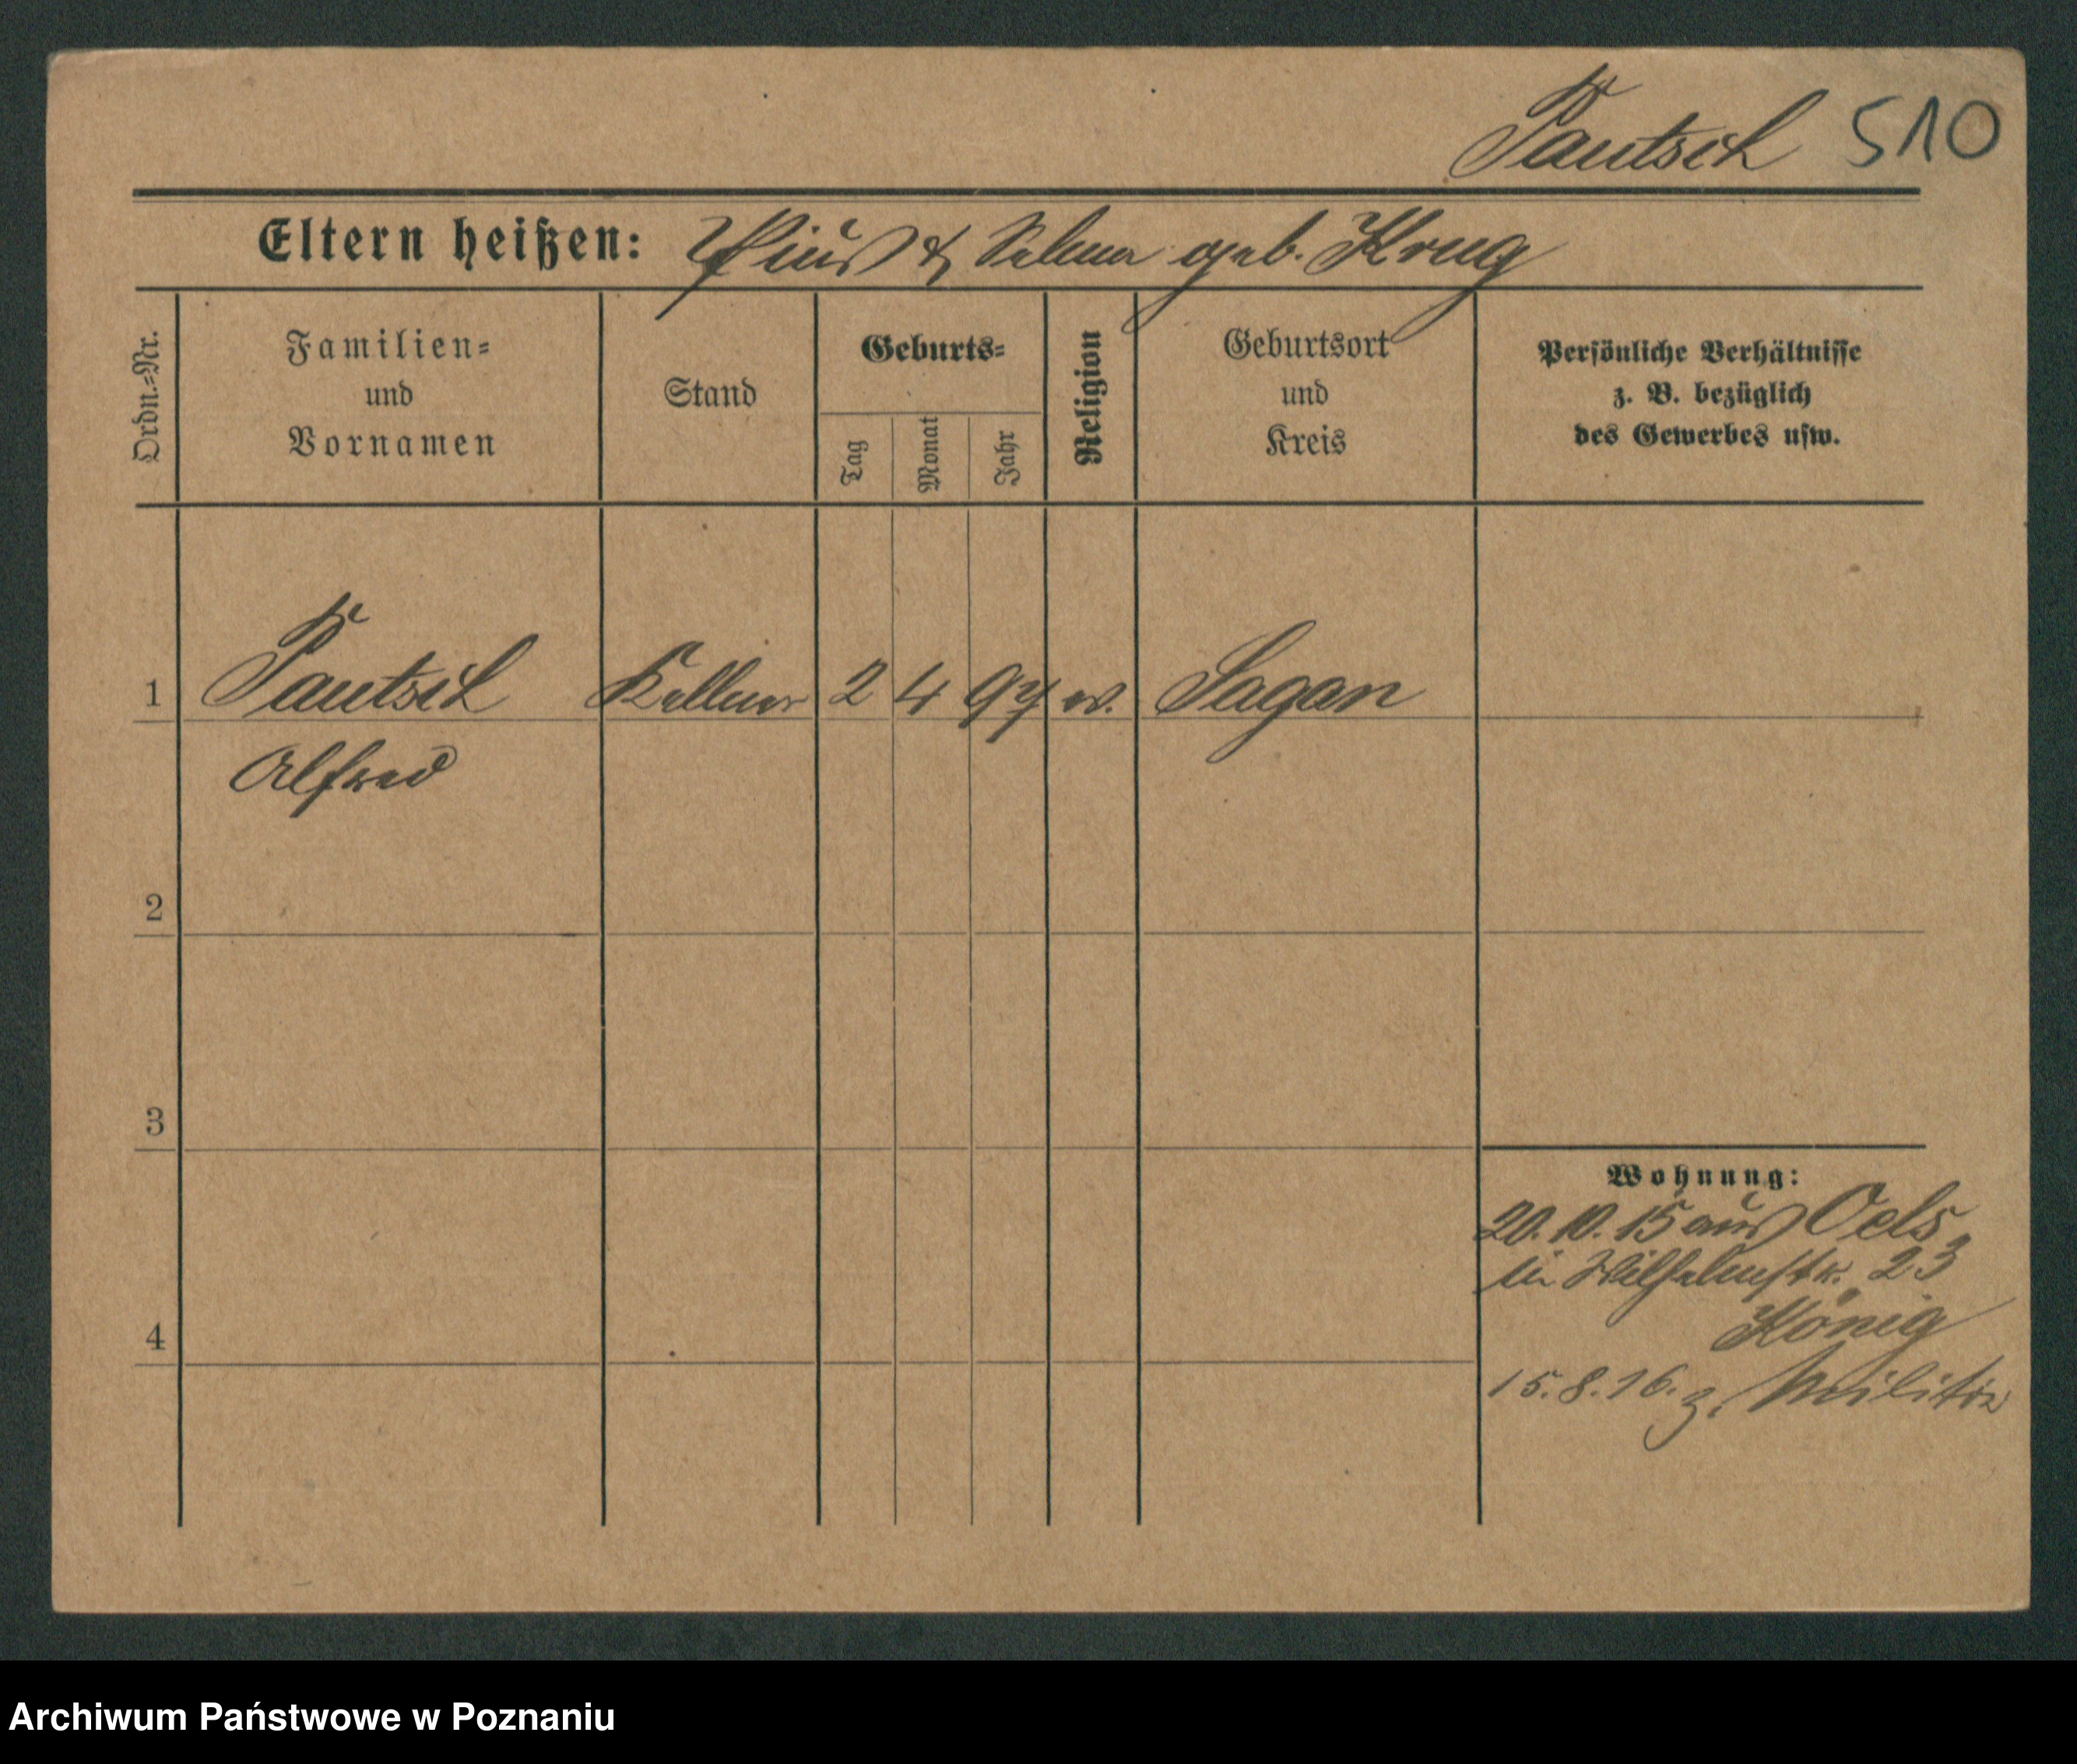 Pautsch 510
Eltern heißen: Pius & Selma geb. Krug
Ordn.=Nr.
Familien=
und
Vornamen
Stand
Geburts=
Tag
Monat
Jahr
Religion
Geburtsort
und
Kreis
Persönliche Verhältnisse
z. B. bezüglich
des Gewerbes usw.
1 Pautsch Kellner 2 4 97 Sagan
Alfred
2
3
4
Wohnung:
20.10.15 aus Oels
in Wilhelmstr. 23
König
15.8.16. z. Militär
Archiwum Państwowe w Poznaniu